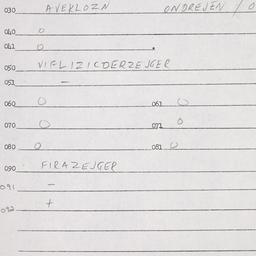 030 AVEKLOZN ONDREJEN / O
040 O
041 O
050 VIFLIZICDERZEJGER
051 –
060 O 061 O
070 O 071 O
080 O 081 O
090 FIRAZEJGER
091 –
092 +